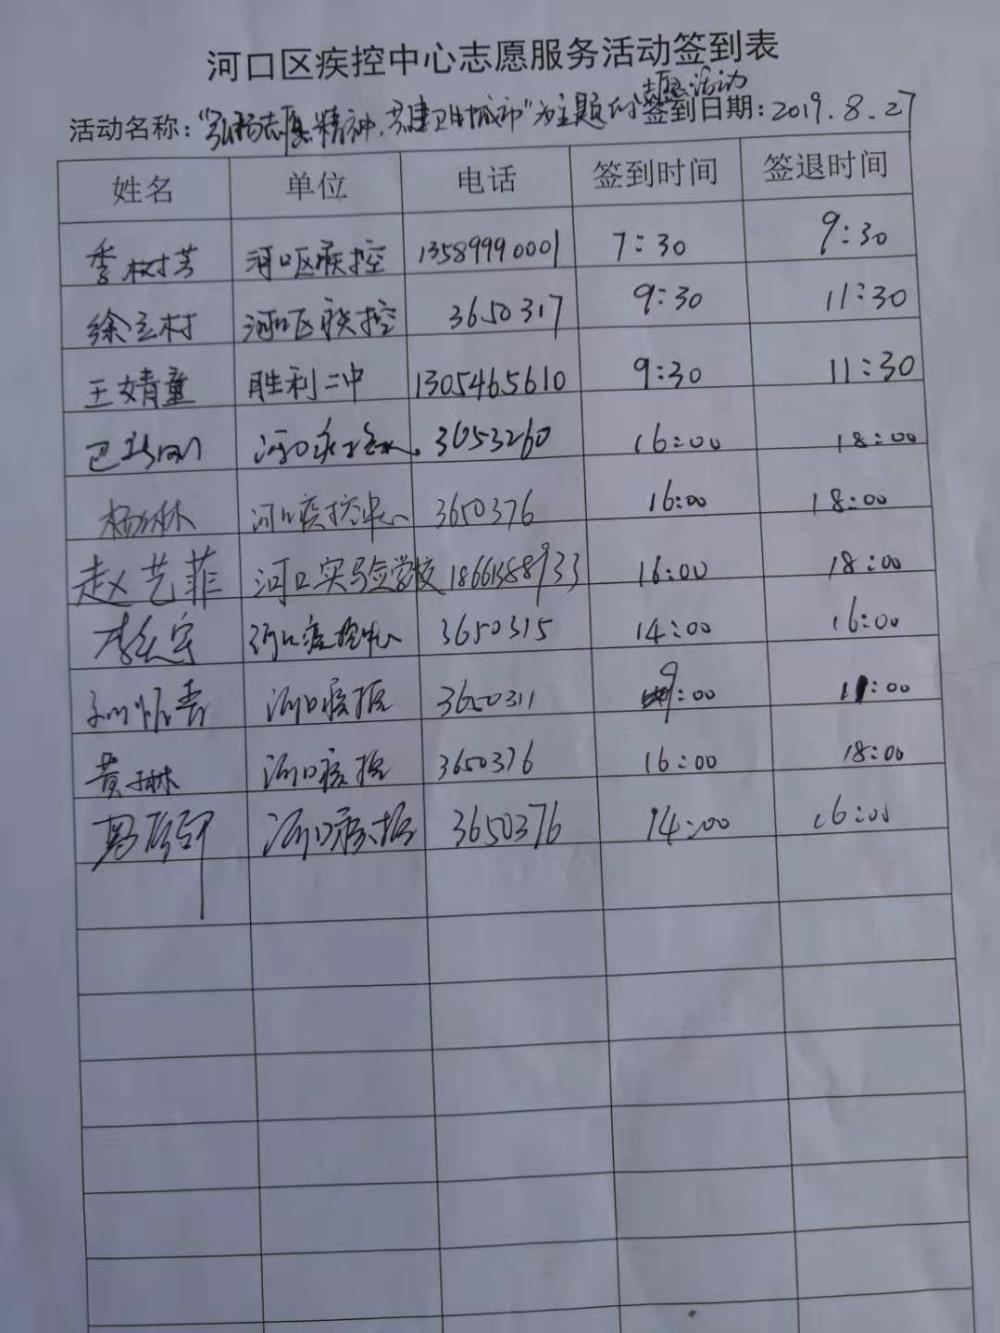 河口区疾控中心志愿服务活动签到表
志愿活动
活动名称："弘扬志愿精神，共建卫生城市"为主题的 签到日期：2019.8.27
姓名 单位 电话 签到时间 签退时间
季树芳 河口区疾控 13589990001 7:30 9:30
徐立村 河口区疾控 3650317 9:30 11:30
王婧童 胜利二中 1305465610 9:30 11:30
3653260 16:00 18:00
杨琳 河口疾控中心 3650376 16:00 18:00
赵艺菲 河口实验学校 18661388933 16:00 18:00
河口疾控中心 3650315 14:00 16:00
河口疾控 3650311 9:00 11:00
黄琳 河口疾控 3650376 16:00 18:00
河口疾控 3650376 14:00 16:00